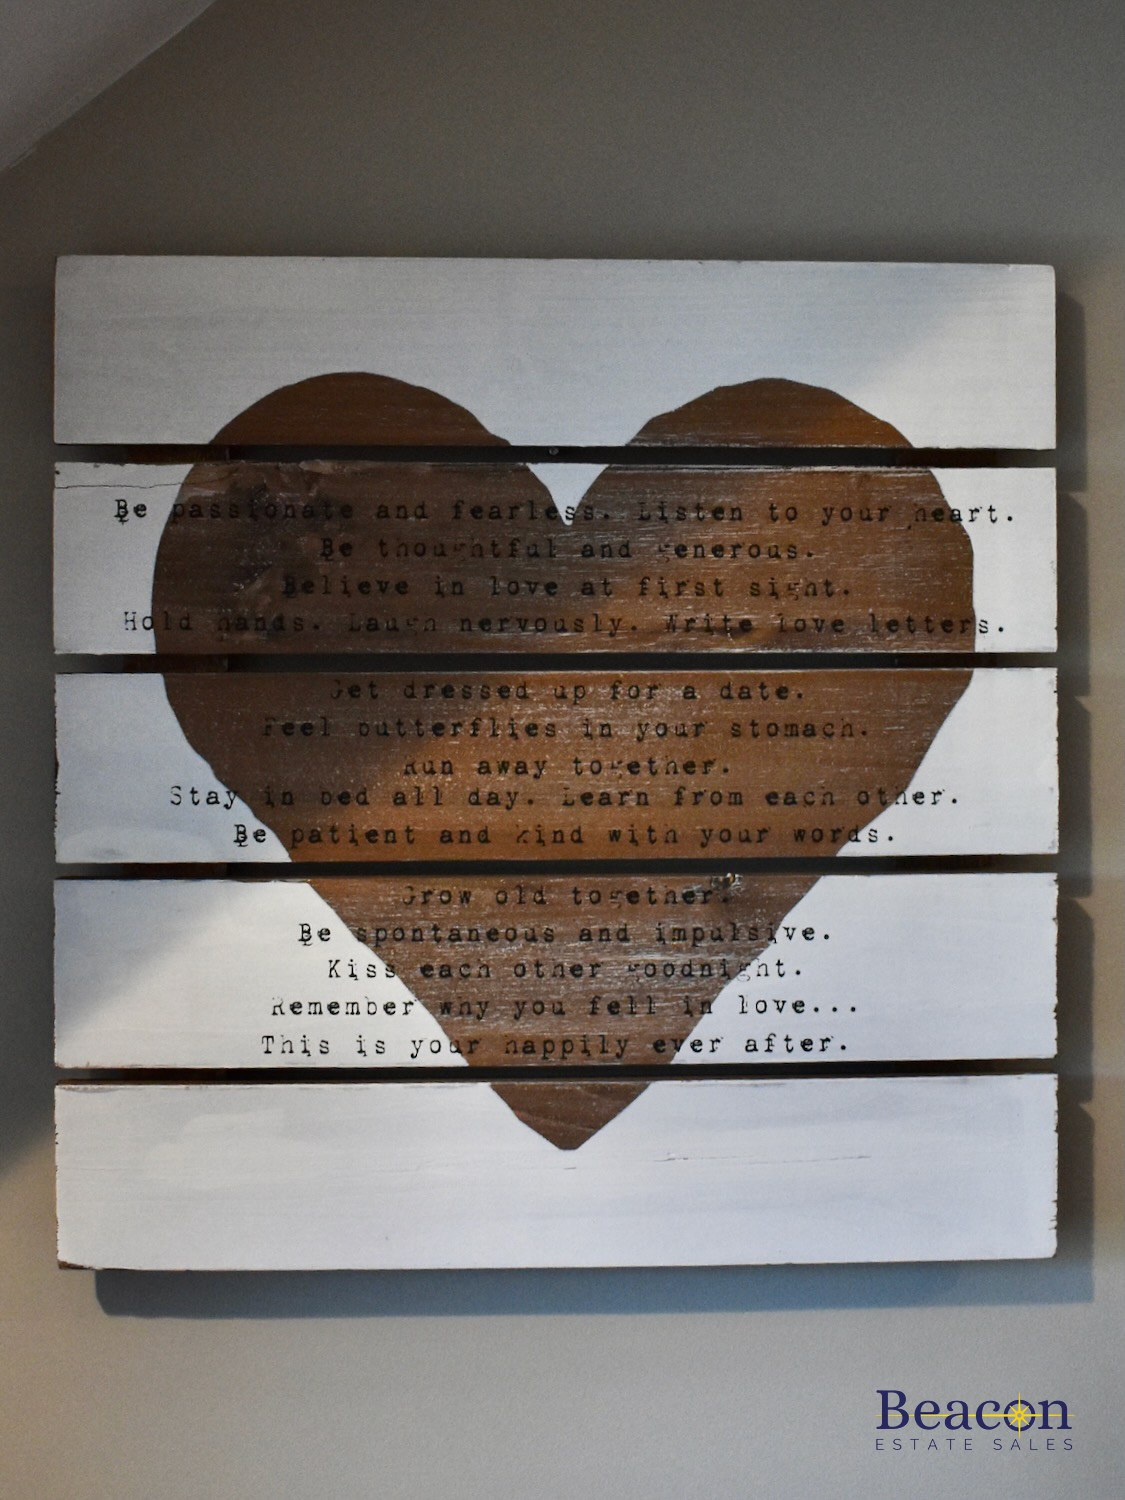 Be passionate and fearless. Listen to your heart.
Be thoughtful and generous.
Believe in love at first sight.
Hold hands. Laugh nervously. Write love letters.
Get dressed up for a date.
Feel butterflies in your stomach.
Run away together.
Stay in bed all day. Learn from each other.
Be patient and kind with your words.
Grow old together.
Be spontaneous and impulsive.
Kiss each other goodnight.
Remember why you fell in love...
This is your happily ever after.
Beacon
ESTATE SALES